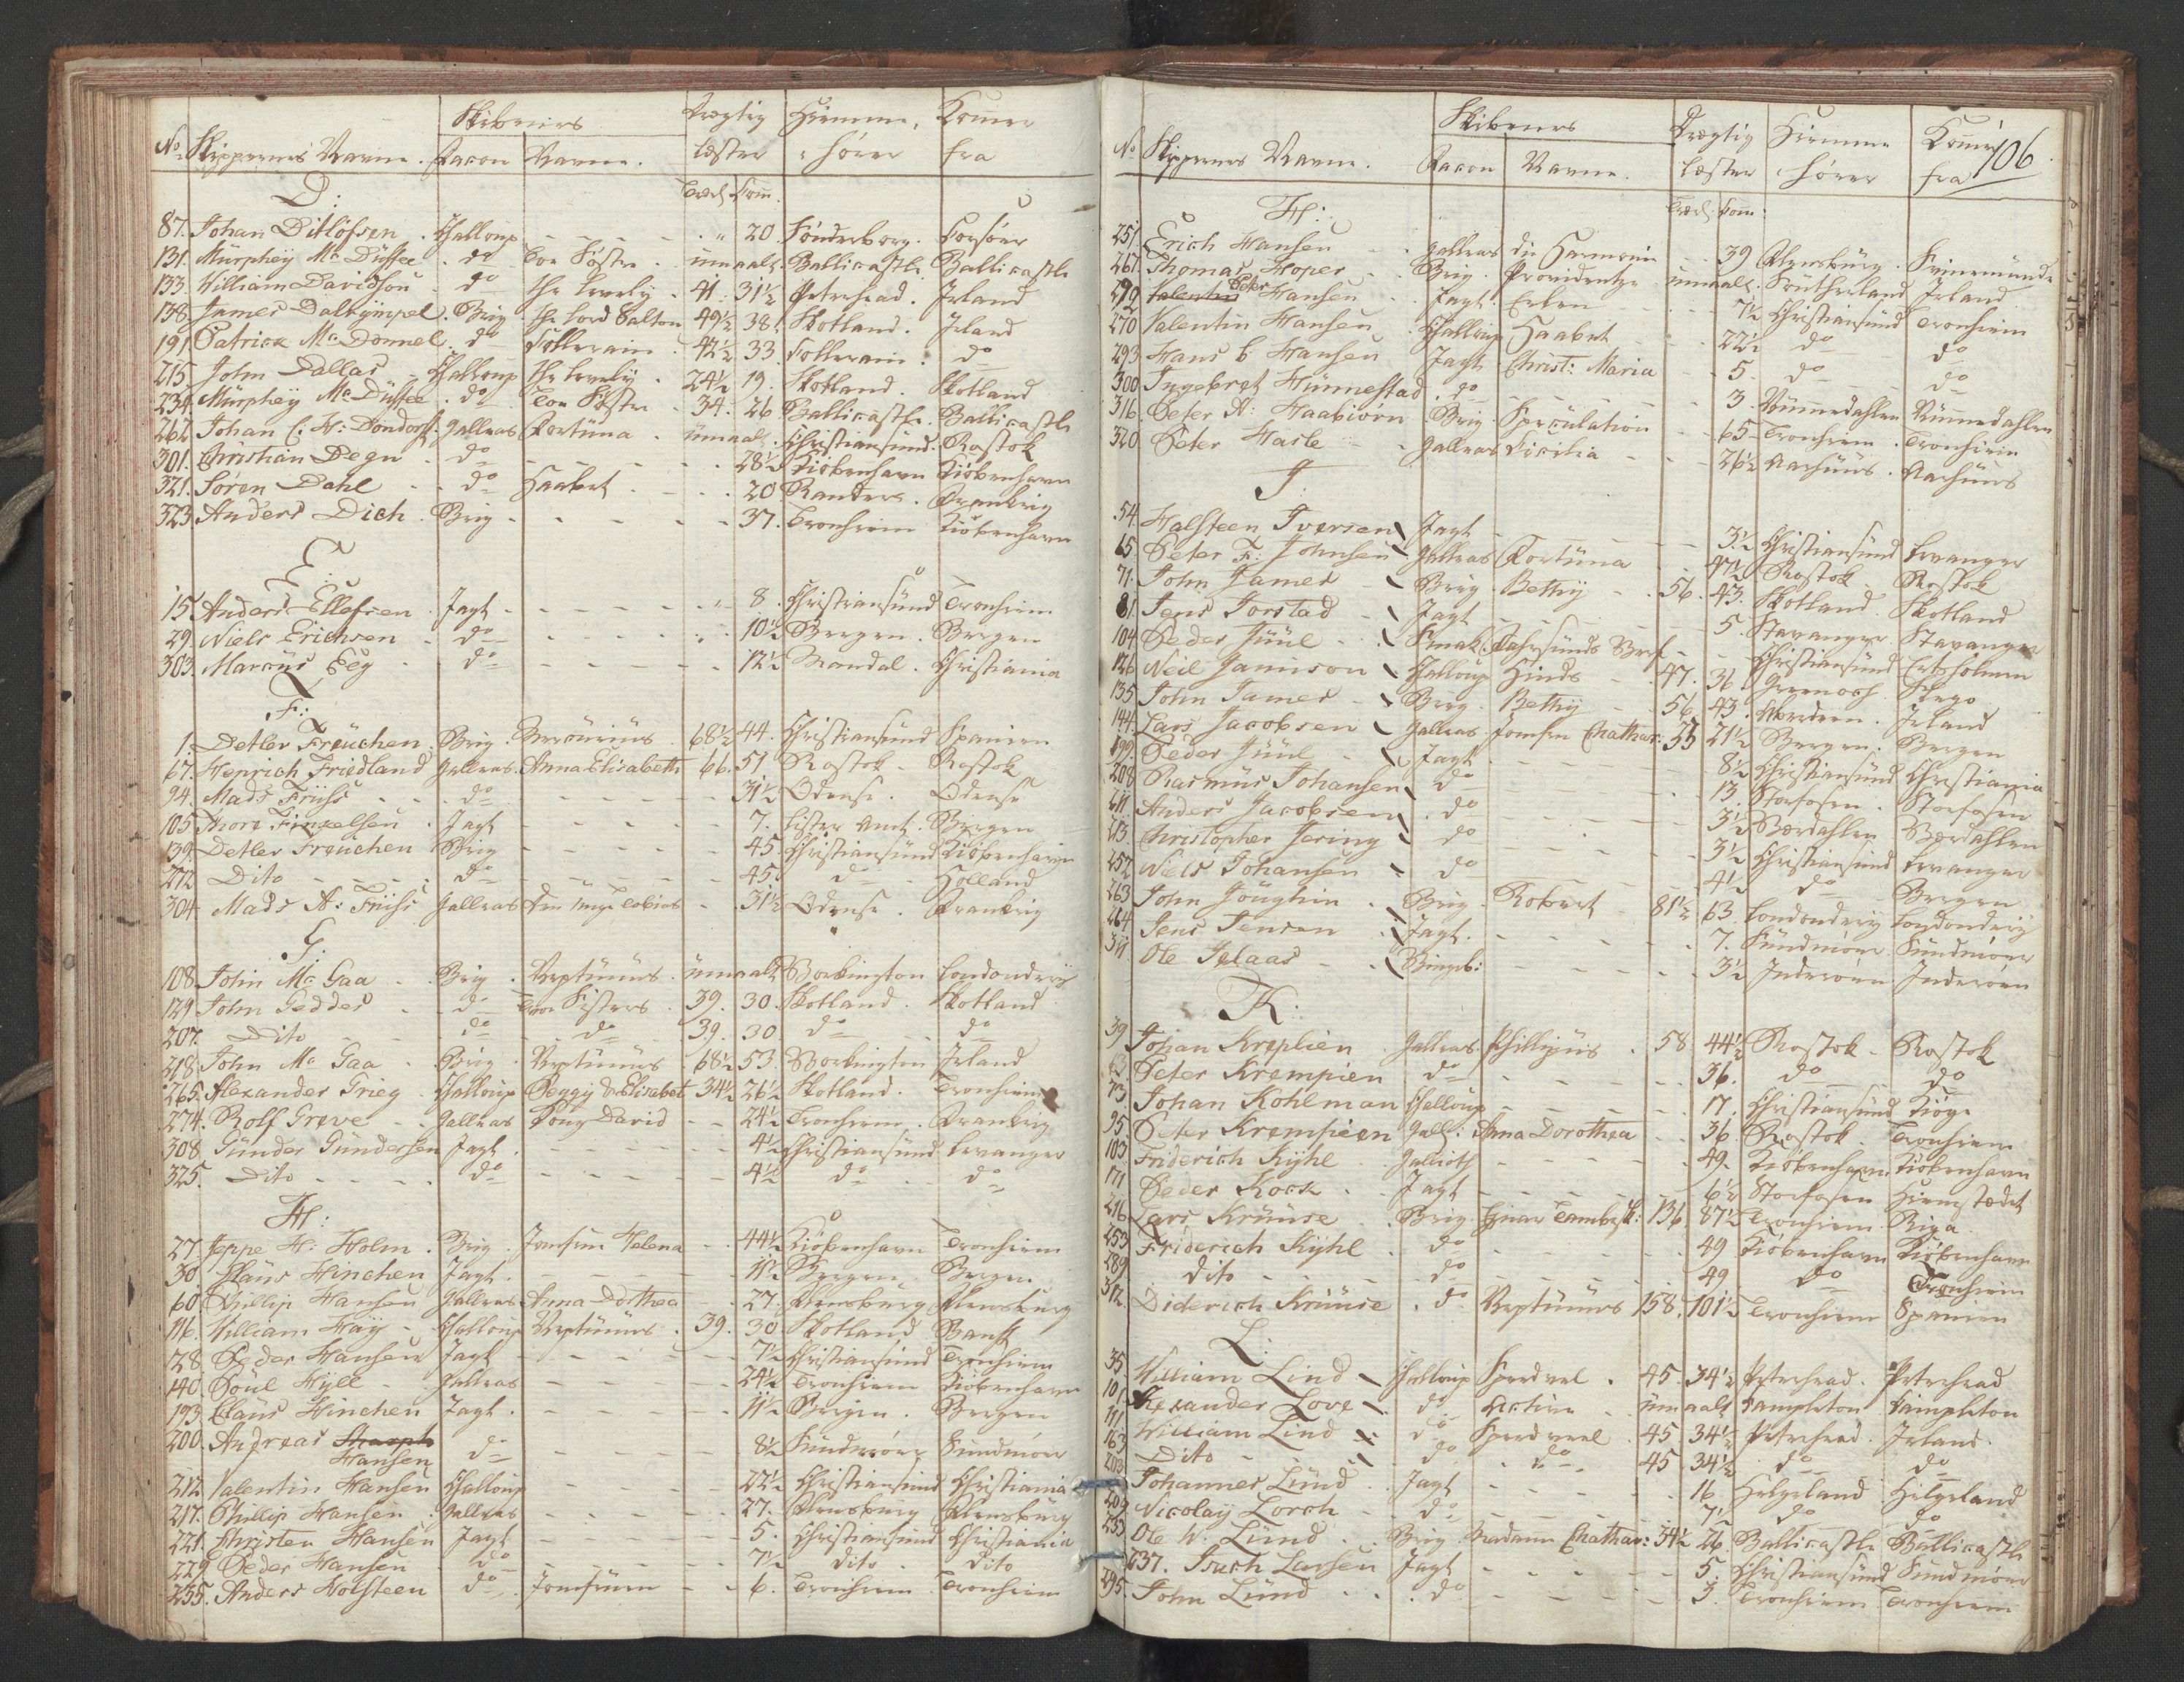 Skibenes Drægtig Hiemme Kommer
No Skippernes Navne. Facon Navne. Læster hører fra
Træel: Com:
D:
87. Johan Ditlofsen. Challoup - - - - 20 Sönderborg. Corsöer
131. Murphey Mc Duffee. do Toe Söstre. unmaalt. Ballicastle Ballicastle
133. William Davidson - do The Lovely. 41. 31½ Peterhead. Irland
138. James Dalrÿmpel. Brig The Lord Salton 49½ 38. Skotland. Irland
191. Patrick Mc Donnel. do Colleraine. 42½ 33 Colleraine. do
215. John Dallas - Challoup The Lovely. 24½ 19. Skotland. Skotland
234. Murphey Mc Duffee. do Toe Söstre. 34. 26 Ballicastle. Ballicastle
262. Johan C: H: Dondorff. Galleas Fortuna. unmaalt. Christiansund. Rostok
301. Christian Degn. do - - - 28½ Kiöbenhavn Kiöbenhavn
321. Soren Dahl - do Haabet. - - 20 Randers. Frankrig
323. Anders Dich. Brig - - - - 37. Tronhiem Kiöbenhavn
E:
15 Anders Ellefsen. Jagt - - - - 8. Christiansund Tronhiem
29. Niels Erichsen - do - - - - 10½ Bergen. Bergen
303. Marcus Eeg - do - - - - 12½ Mandal. Christiania
F:
1. Detlev Freuchen. Brig. Mercurius. 68½ 44. Christiansund Spanien
67. Henrich Friedland Galleas. Anna Elisabeth 66. 51 Rostok - Rostok
94. Mads Friihs - do - - - - 31½ Odense. Odense
105 Thore Finkelsen. Jagt - - - - 7. Lister Amt. Bergen
139. Detlev Freuchen Brig - - - - 45. Christiansund Kiöbenhavn
272 Dito - - - do - - - - 45. do Holland
304 Mads A: Friihs Galleas Den unge Tobias - 31½ Odense. Frankrig
G:
108. John Mc Gaa - Brig. Neptunus. unmaalt Workington Londonderÿ
129 John Gedder - do Toe Sisters. 39. 30. Skotland. Skotland
207. Dito - - do do 39. 30 do do
218. John Mc Gaa - Brig. Neptunus 68½ 53. Workington Irland
265. Alexander Grieg. Challoup Peggÿ & Elisabet 34½ 26½ Skotland. Tronhiem
274. Rolf Greve - Galleas Kong David - - 24½ Tronhiem. Frankrig
308. Gunder Gundersen Jagt. - - - - 4½ Christiansund Levanger
325. Dito - - - do - - - - 4½ do do
H:
27. Jeppe H: Holm. Brig. Jomfrue Helena - - 44½ Kiöbenhavn Tronhiem
30. Klaus Hinchen Jagt. - - - - 11½ Bergen. Bergen
60. Phillip Hansen Galleas Anna Dorthea - 27. Flensburg Flensburg
116. William Haÿ - Challoup Neptunus. 39. 30. Skotland Banff
128. Peder Hansen Jagt - - - - 7½ Christiansund Tronhiem
140. Poul Hÿll - Galleas - - - - 24½ Tronhiem Kiöbenhavn
193. Claus Hinchen Jagt. - - - - 11½ Bergen. Bergen
200. Andreas Hansen do - - - - 8½ Sundmöer Sundmöer
212 Valentin Hansen Challoup - - - 22½ Christiansund Christiania
217. Phillip Hansen. Galleas - - - - 27. Flensburg Flensburg
221. Christen Hansen Jagt - - - - 5. Christiansund Christiania
229 Peder Hansen - do - - - - 7½ Dito. Dito
235. Anders Holsteen do. Jomfruen - - 6. Tronhiem Tronhiem
106.
Skibenes Drægtig Hiemme Kommer
No Skippernes Navne. Facon Navne. Læster hører fra
Træel: Com:
H:
251. Erich Hansen - Galleas die Harmonie - 39 Flensburg. Svinemünde
267. Thomas Hoper - Brig. Providentze unmaalt. Southerland Irland
279 Valentin Peter Hansen. Jagt. - - - 7½ Christiansund Tronhiem
270 Valentin Hansen. Challoup Haabet - - 22½ do do
293 Hans C. Hansen Jagt Christ: Maria - - 5 do do
300 Ingebret Hunnestad. do - - - - 3 Nummedahlen Nummedahlen
316 Peter A: Haabiörn. Brig. Speculation - - 65 Tronhiem. Tronhiem
320 Peter Hasle - Galleas Cicilia - - - 26½ Aarhuus. Aarhuus
I
54. Halsteen Iversen Jagt - - - - 3½ Christiansund Levanger
65 Peter F: Johnsen Galleas Fortuna - - 47½ Rostok - Rostok
71. John James - Brig. Bethÿ - 56. 43. Skotland. Skotland
81. Jens Jorstad - Jagt - - - - 5. Stavanger Stavanger
104 Peder Juul - Smak. - - Christiansund
126 Neil Jamison - Challoup Hinds - 47. 36. Greenoch.
135 John James - Brig. Bethÿ - 56 43. Aberdeen. Irland
144. Lars Jacobsen - Galleas. Jomfru Chathar: 33 21½ Bergen. Bergen
199. Peder Juul - Jagt. - - - - 8½ Christiansund Christiania
208 Rasmus Johansen do - - - - 13. Storfosen. Storfosen
211 Anders Jacobsen. do - - - - 3½ Værdahlen Værdahlen
213. Christopher Jering do - - - - 3½ Christiansund Levanger
252 Niels Johansen - do - - - - 4½ do Bergen
263 John Joughin - Brig. Robert - 81½ 63. Londonderÿ Londonderÿ
264 Jens Jensen - Jagt. - - - - 7. Sundmöer Sundmöer
311 Ole Jelaas - - - - - - 3½ Inderöen Inderöen
K:
39 Johan Kreplien. Galleas Phillippus. 58 44½ Rostok - Rostok
63 Peter Krempien do - - - - 36. do do
73. Johan Kohlman Challoup - - - - 17. Christiansund Kiöge
95 Peter Krempien Gall: Anna Dorothea - - 36 Rostok. Tronhiem
103 Friderich Kÿhl. Galioth - - - - 49. Kiöbenhavn Kiöbenhavn
171 Peder Kock. Jagt - - - - 6½ Storfosen Hiemstædet
216 Lars Kruuse. Brig. Einar Tambeskl: 136 87½ Tronhiem. Riga
253 Friderich Kÿhl. do - - - - 49 Kiöbenhavn Kiöbenhavn
289 Dito - - do - - - - 49 do Tronhiem
312. Diderich Kruuse. do Neptunus 158. 101½ Tronhiem Spanien
L:
35. William Lind - Challoup Speedwel. 45. 34½ Peterhead. Peterhead
101 Alexander Love - do Active - unmaalt Campleton Campleton
111 William Lind - do Speedwel. 45 34½ Peterhead. Irland.
163 Dito - do do 45 34½ do do
203 Johannes Lund. Jagt - - - - 16. Helgeland Helgeland
209 Nicolaÿ Lorch - do - - - - 7½ do do
233 Ole W. Lund. Brig Madame Chathar: 34½ 26 Ballicastle Ballicastle
237. Larsen Jagt - - - - 5. Christiansund Sundmöer
295. John Lund. do - - - - 3. Tronhiem Tronhiem